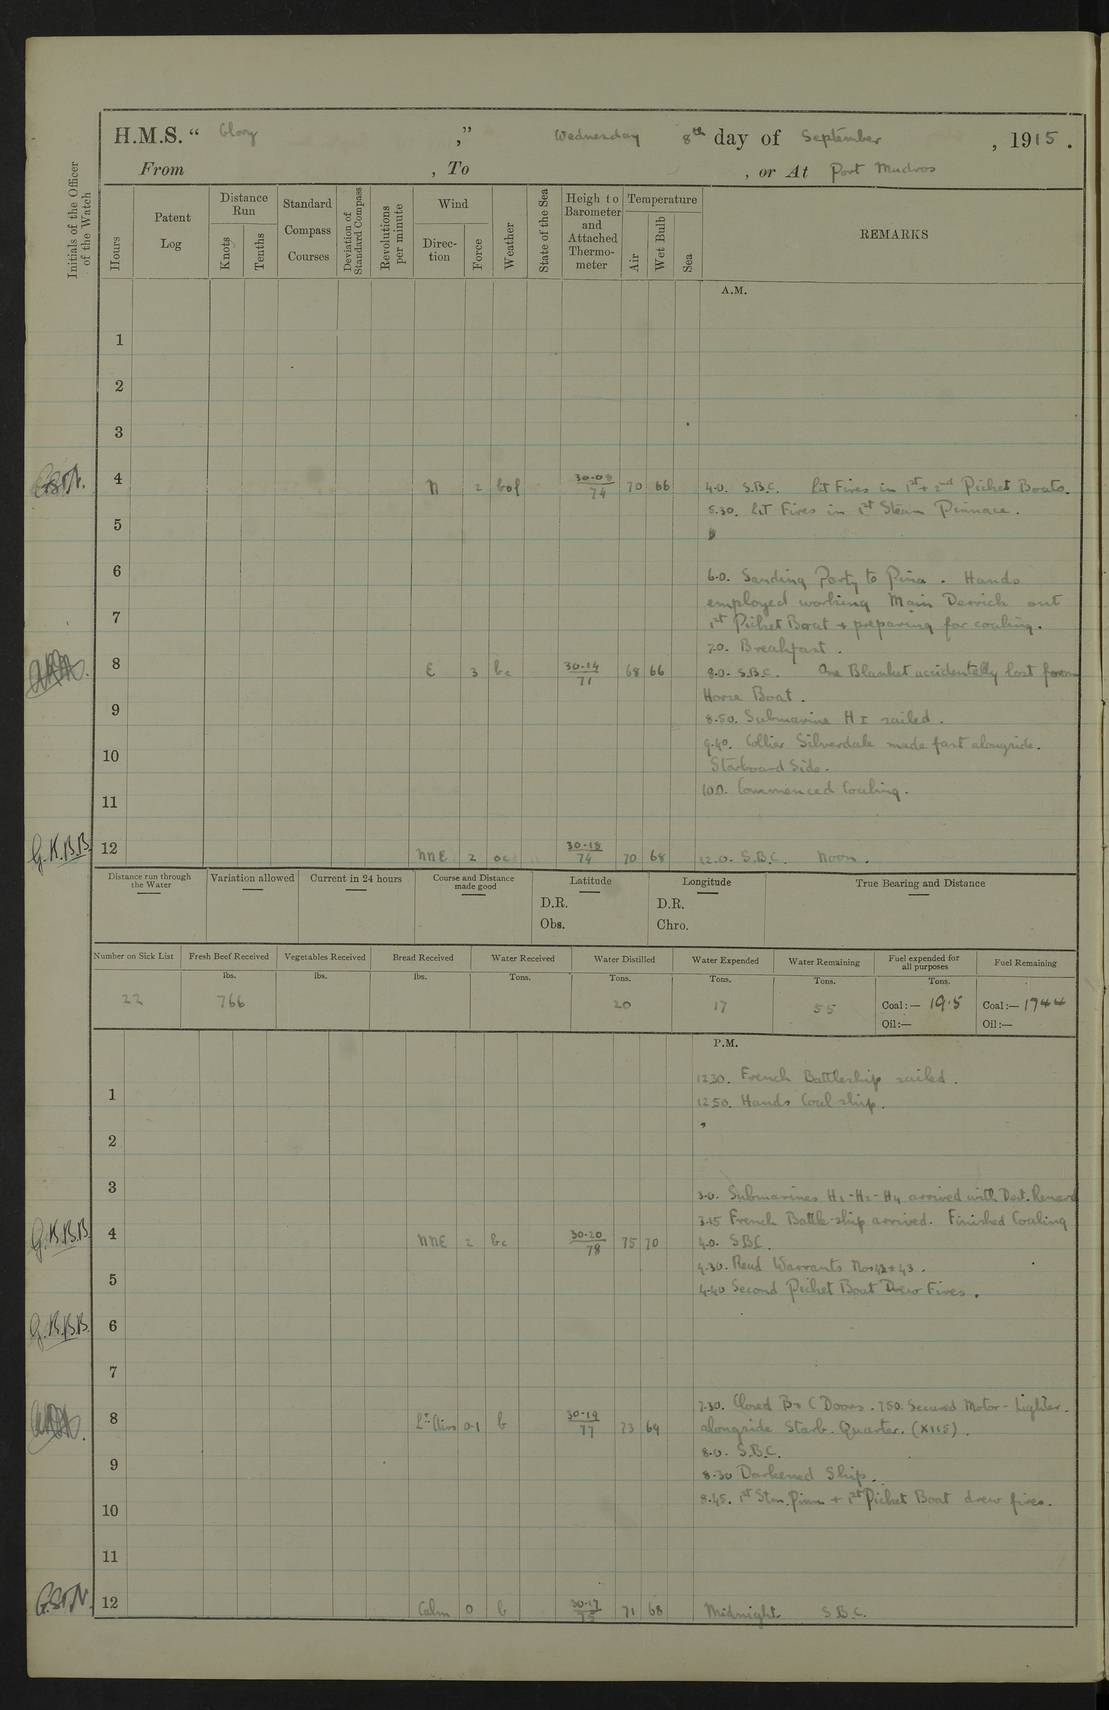 H.M.S. “ Glory ,” Wednesday 8th day of September , 1915 .
From , To , or At Port Mudros
Initials of the Officer of the Watch
Hours
Patent Log
Distance Run
Knots
Tenths
Standard Compass Courses
Deviation of Standard Compass
Revolutions per minute
Wind
Direc- tion
Force
Weather
State of the Sea
Heigh t o Barometer and Attached Thermo- meter
Temperature
Air
Wet Bulb
Sea
REMARKS
A.M.
1
2
3
4 N 2 30-09 74 70 66 4-0. S.B.C. Lit Fires in 1st + 2nd Picket Boats.
5.30. Lit Fires in 1st Steam Pinnace.
5
6
6-0. Sanding Party to Pina . Hands
employed working Main Derrick out
7
1st Picket Boat + preparing for coaling.
7.0. Breakfast .
8 E 3 bc 30-14 71 68 66 8.0. S.B.C. One Blanket accidentally lost from
Horse Boat .
9
8.50. Submarine H I sailed .
9.40. Collier Silverdale made fast alongside.
10
Starboard Side.
10.0. Commenced Coaling.
11
G.K.B.B. 12 NNE 2 oc 30-18 74 70 68 12.0. S.B.C. Noon .
Distance run through the Water
Variation allowed
Current in 24 hours
Course and Distance made good
Latitude
D.R.
Obs.
Longitude
D.R.
Chro.
True Bearing and Distance
Number on Sick List
Fresh Beef Received
Vegetables Received
Bread Received
Water Received
Water Distilled
Water Expended
Water Remaining
Fuel expended for all purposes
Fuel Remaining
lbs. lbs. lbs. Tons. Tons. Tons. Tons. Tons.
22 766 20 17 55 Coal:— 19.5 Coal:— 1744
Oil:— Oil:—
P.M.
12.30. French Battleship sailed .
1
12.50. Hands Coal ship.
2
3
3.0. Submarines H1-H2-H4 arrived with Dest. Renard
3.15 French Battle-ship arrived. Finished Coaling
G.K.B.B. 4 NNE 2 bc 30-20 78 75 70 4.0. SBC.
4.30. Read Warrants Nos 42 + 43 .
5
4.40 Second Picket Boat Drew Fires .
G.K.B.B. 6
7
7.30. Closed B and C Doors . 7.50. Secured Motor-Lighter.
8 Lt Airs 0-1 b 30-19 77 73 64 alongside Starb. Quarter. (X115) .
8.0. S.B.C.
9
8.30 Darkened Ship.
8.45. 1st Stm. Pinn + 1st Picket Boat drew fires.
10
11
12 Calm 0 b 30-17 75 71 68 Midnight S.B.C.